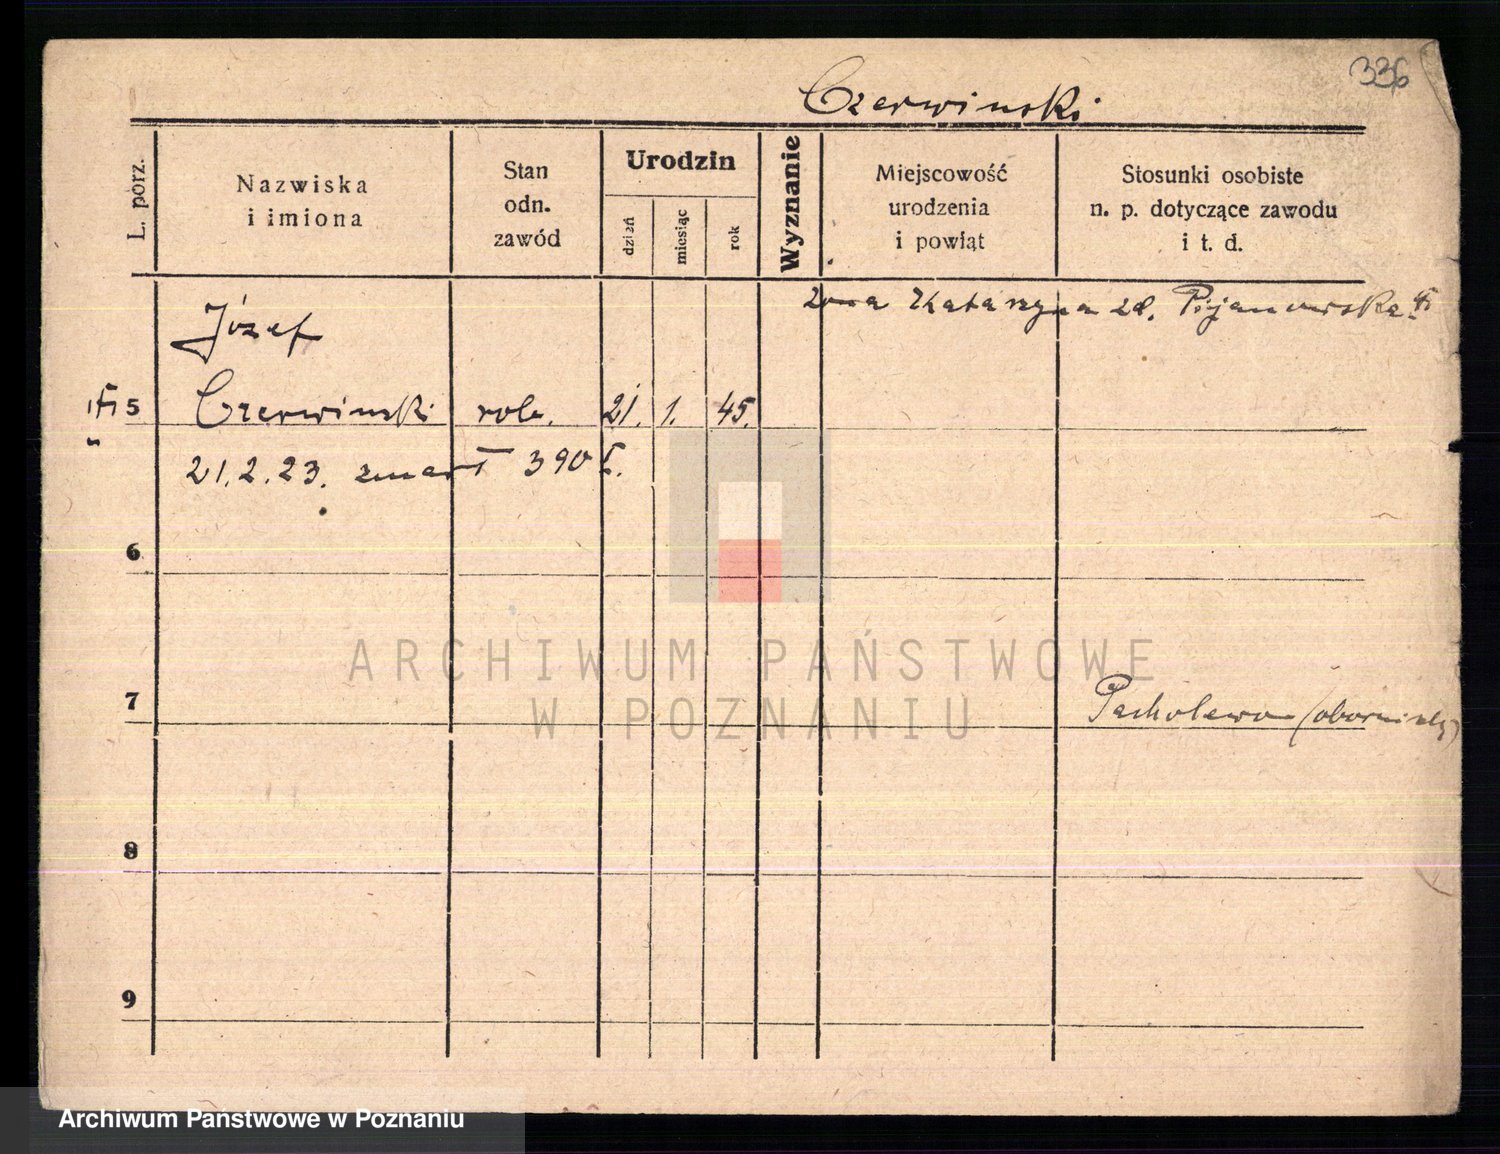 336
Czerwinski
L. porz.
Nazwiska
i imiona
Stan
odn.
zawód
Urodzin
dzień
miesiąc
rok
Wyznanie
Miejscowość
urodzenia
i powiat
Stosunki osobiste
n. p. dotyczące zawodu
i t. d.
żona Katarzyna zd. Pijanowska
Józef
5 Czerwinski rob. 21. 1. 45.
21.2.23. zmarł 390
6
7 Pacholewo (obornicki)
8
9
ARCHIWUM PAŃSTWOWE
W POZNANIU
Archiwum Państwowe w Poznaniu